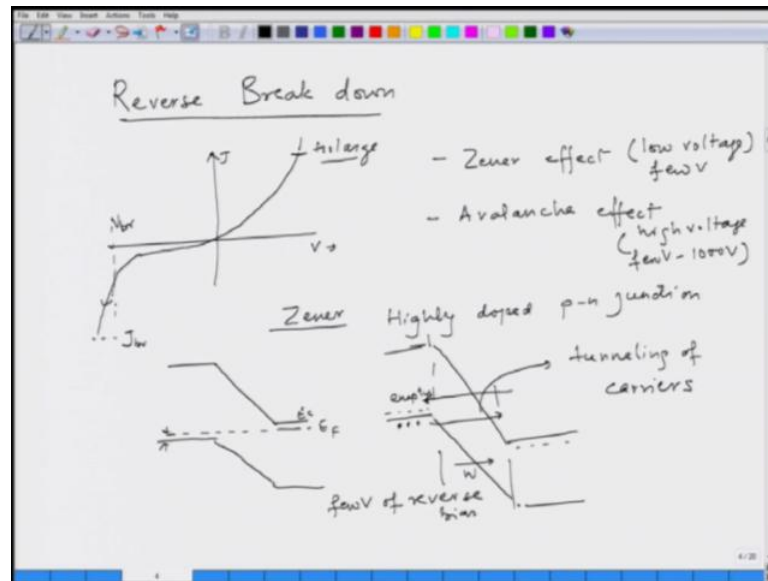 File Edit View Insert Actions Tools Help
Reverse Break down
J
V
- Zener effect (low voltage)
few V
- Avalanche effect
(high voltage
few V - 1000V)
Jbr
Zener Highly doped p-n junction
tunneling of
carriers
empty
Ec
EF
W
few V of reverse
bias
4/20
4